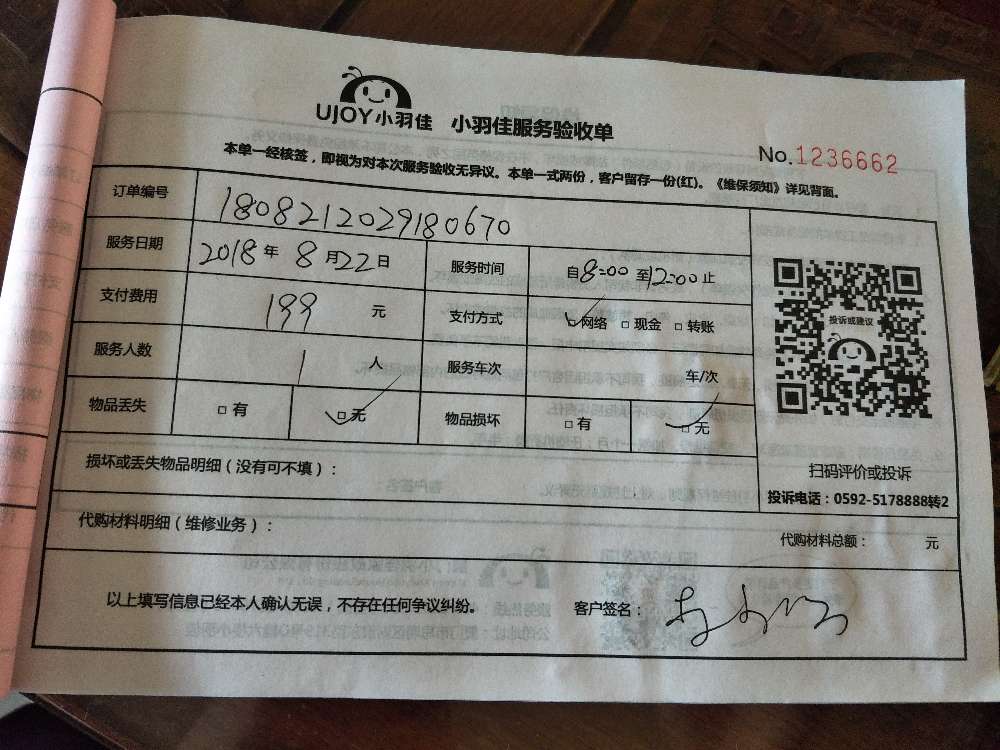 UJOY小羽佳 小羽佳服务验收单
No.1236662
本单一经核签，即视为对本次服务验收无异议。本单一式两份，客户留存一份(红)。《维保须知》详见背面。
订单编号 1808212029180670
服务日期 2018年8月22日 服务时间 自8:00至12:00止
支付费用 199 元 支付方式 ☑网络 □现金 □转账
服务人数 1 人 服务车次 车/次
物品丢失 □有 ☑无 物品损坏 □有 ☑无
投诉或建议
扫码评价或投诉
投诉电话：0592-5178888转2
损坏或丢失物品明细（没有可不填）：
代购材料明细（维修业务）： 代购材料总额： 元
以上填写信息已经本人确认无误，不存在任何争议纠纷。 客户签名：